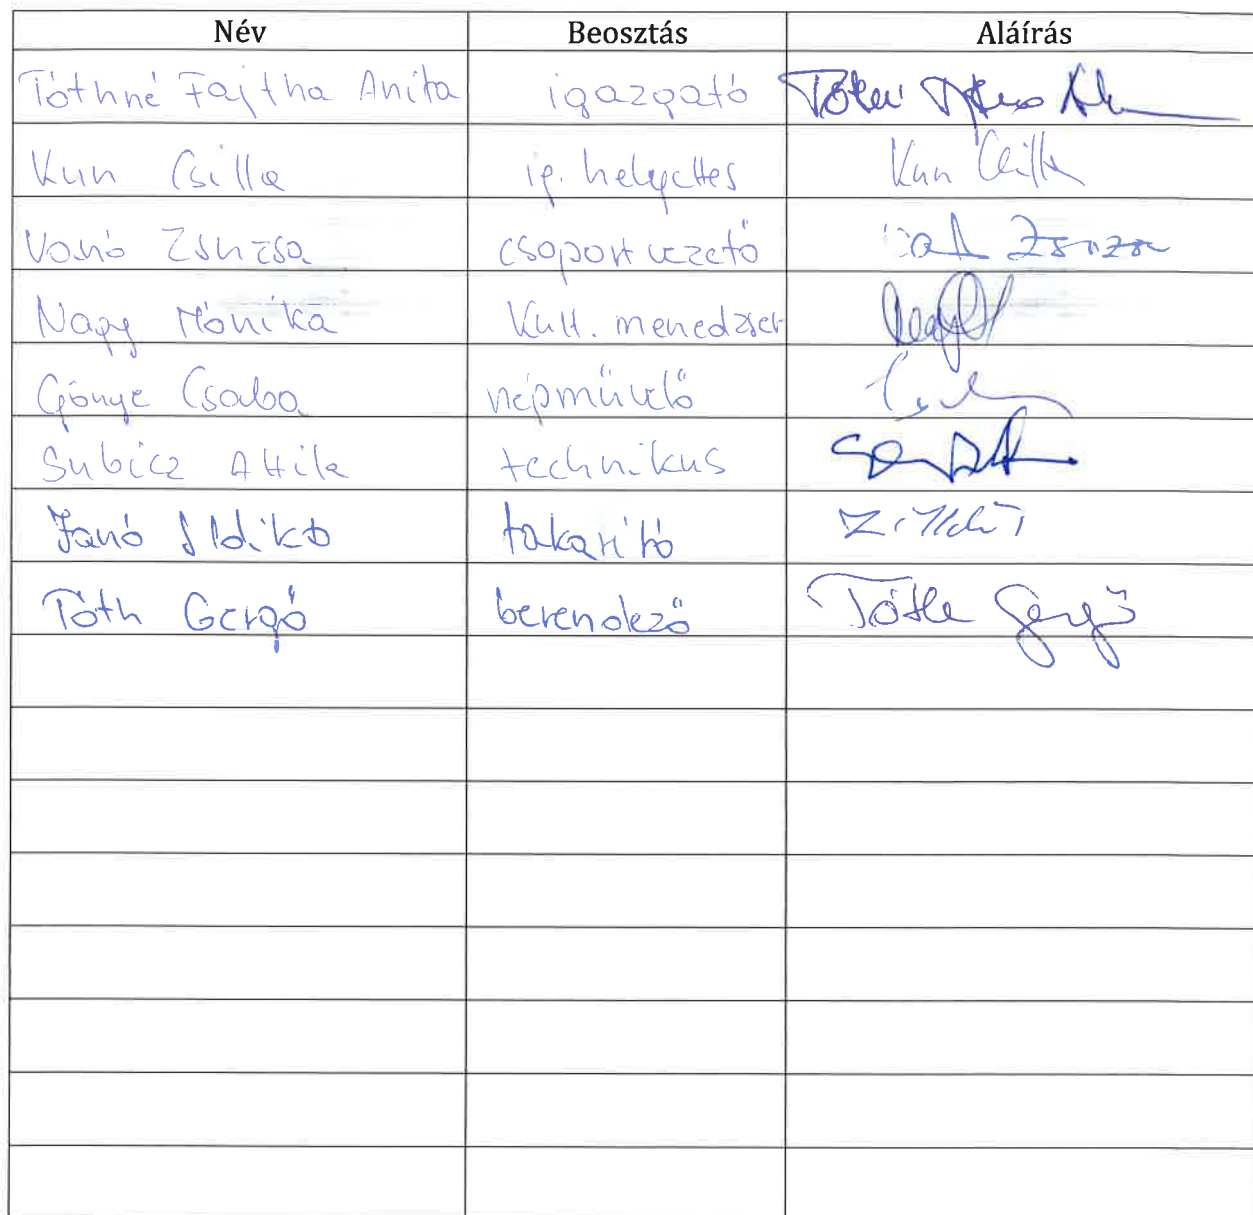 Név Beosztás Aláírás
Tóthné Fajtha Anita igazgató
Kun Csilla ig. helyettes Kun Csilla
Vanó Zsuzsa csoportvezető Zsuzsa
Nagy Mónika Kult. menedzser
Gönye Csaba népművelő
Subicz Attila technikus
Janó Ildikó takarító
Tóth Gergő berendező Tóth Gergő